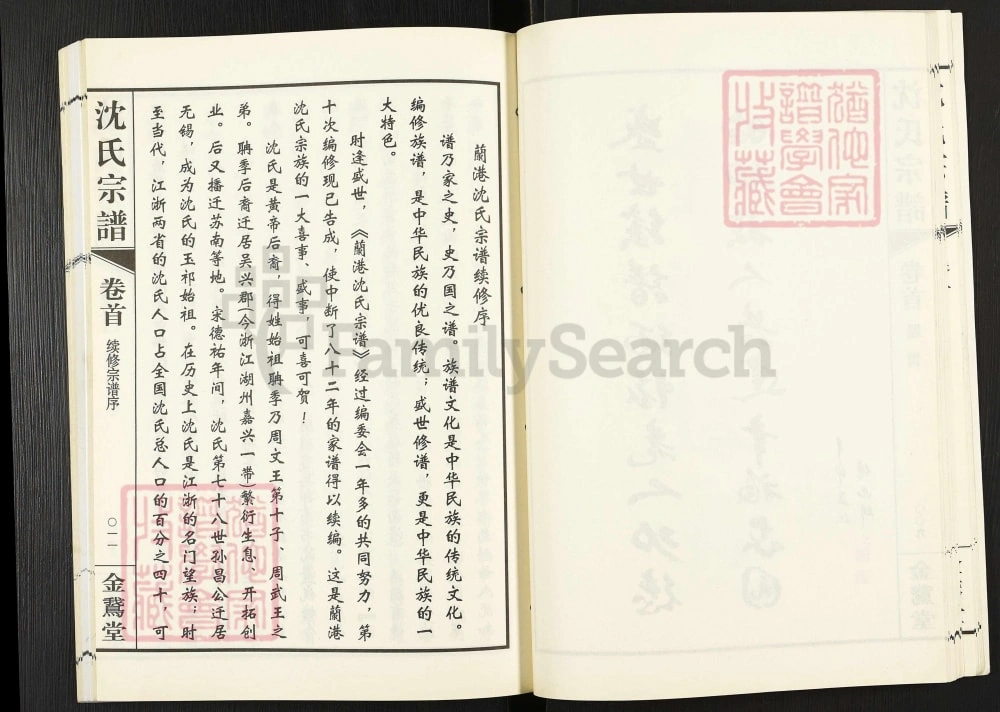 蘭港沈氏宗譜续修序
谱乃家之史，史乃国之谱。族谱文化是中华民族的传统文化。
编修族谱，是中华民族的优良传统；盛世修谱，更是中华民族的一
大特色。
时逢盛世，《蘭港沈氏宗谱》经过编委会一年多的共同努力，第
十次编修现已告成，使中断了八十二年的家谱得以续编。这是蘭港
沈氏宗族的一大喜事、盛事，可喜可贺！
沈氏是黄帝后裔，得姓始祖聃季乃周文王第十子、周武王之
弟。聃季后裔迁居吴兴郡（今浙江湖州嘉兴一带）繁衍生息、开拓创
业。后又播迁苏南等地。宋德祐年间，沈氏第七十八世孙昌公迁居
无锡，成为沈氏的玉祁始祖。在历史上沈氏是江浙的名门望族；时
至当代，江浙两省的沈氏人口占全国沈氏总人口的百分之四十，可
沈氏宗譜
卷首
续修宗谱序
〇一一
金鵞堂
猶他家
譜學會
收藏
猶他家
譜學會
收藏
FamilySearch